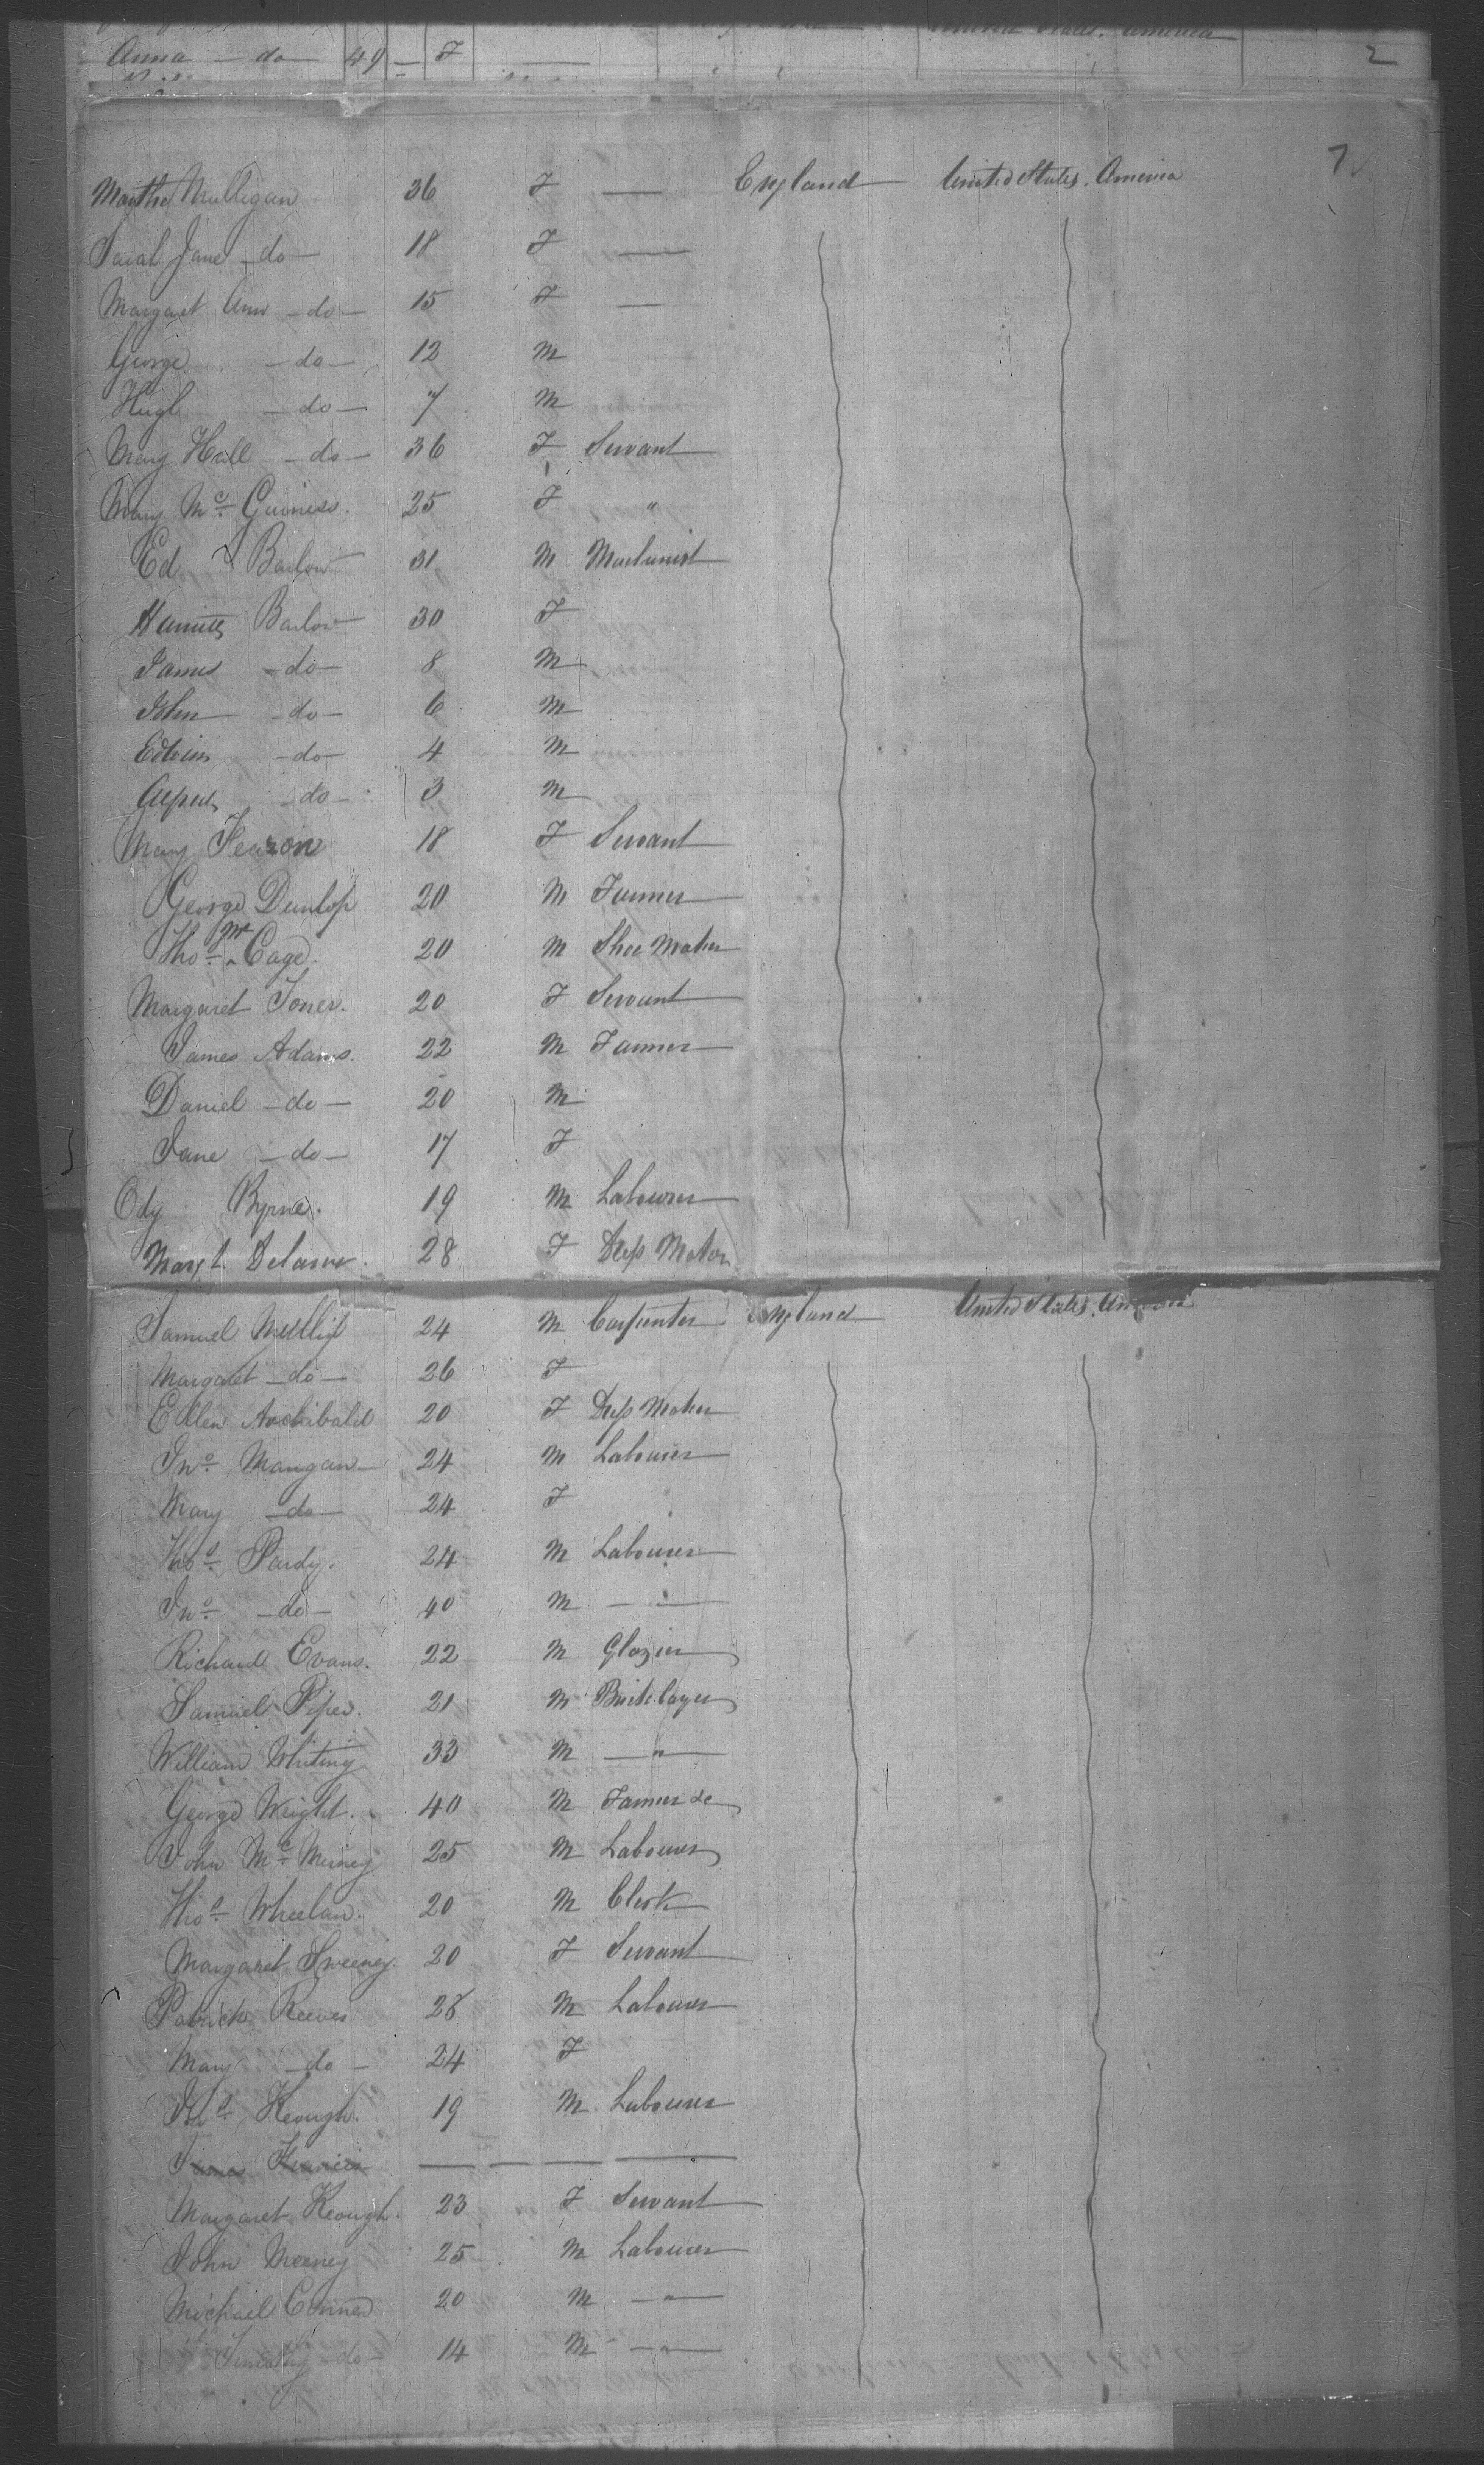 Anna - do - 49 F 2
7
Martha Mulligan 36 F — England United States. America
Sarah Jane - do - 18 F —
Margaret Ann - do - 15 F —
George - do - 12 M
Hugh - do - 7 M
Mary Hall - do - 36 F Servant
Mary Mc Guiness. 25 F "
Ed Barlow 31 M Machinist
Barlow 30 F
James - do - 8 M
John - do - 6 M
Edwin - do - 4 M
Alfred - do - 3 M
Mary Fearon 18 F Servant
George Dunlop 20 M Farmer
Thos. Mc Cage. 20 M Shoe Maker
Margaret Toner. 20 F Servant
James Adams. 22 M Farmer
Daniel - do - 20 M
Jane - do - 17 F
Ody Byrne. 19 M Labourer
Margt. 28 F Dress Maker
Samuel 24 M Carpenter England United States. America
Margaret - do - 26 F
Ellen Archibald 20 F Dress Maker
Jno. Mangan 24 M Labourer
Mary - do - 24 F
Thos. Pardy. 24 M Labourer
Jno. - do - 40 M — " —
Richard Evans. 22 M Glazier
Samuel Piper. 21 M Bricklayer
William Whiting 33 M — " —
George Wright. 40 M Farmer &c
John Mc 25 M Labourer
Thos. Wheelan. 20 M Clerk
Margaret Sweeney. 20 F Servant
Patrick Reeves 28 M Labourer
Mary - do - 24 F
Keough. 19 M Labourer
James — — — —
Margaret Keough. 23 F Servant
John Meeney 25 M Labourer
Michael Conner 20 M — " —
Timothy - do - 14 M — " —